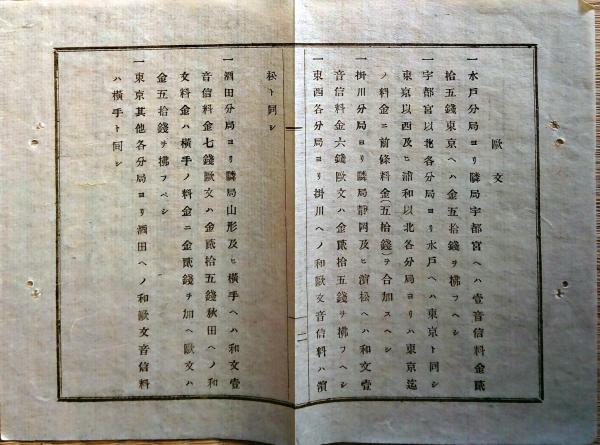 歐文
一水戸分局ヨリ隣局宇都宮ヘハ壹音信料金貳
拾五錢東京ヘハ金五拾錢ヲ拂フヘシ
一宇都宮以北各分局ヨリ水戸ヘハ東京ト同シ
東京以西及ヒ浦和以北各分局ヨリハ東京迄
ノ料金ニ前條料金(五拾錢)ヲ合加スヘシ
一掛川分局ヨリ隣局靜岡及ヒ濱松ヘハ和文壹
音信料金六錢歐文ハ金貳拾五錢ヲ拂フヘシ
一東西各分局ヨリ掛川ヘノ和歐文音信料ハ濱
二
松ト同シ
一酒田分局ヨリ隣局山形及ヒ橫手ヘハ和文壹
音信料金七錢歐文ハ金貳拾五錢秋田ヘノ和
文料金ハ橫手ノ料金ニ金貳錢ヲ加ヘ歐文ハ
金五拾錢ヲ拂フヘシ
一東京其他各分局ヨリ酒田ヘノ和歐文音信料
ハ橫手ト同シ